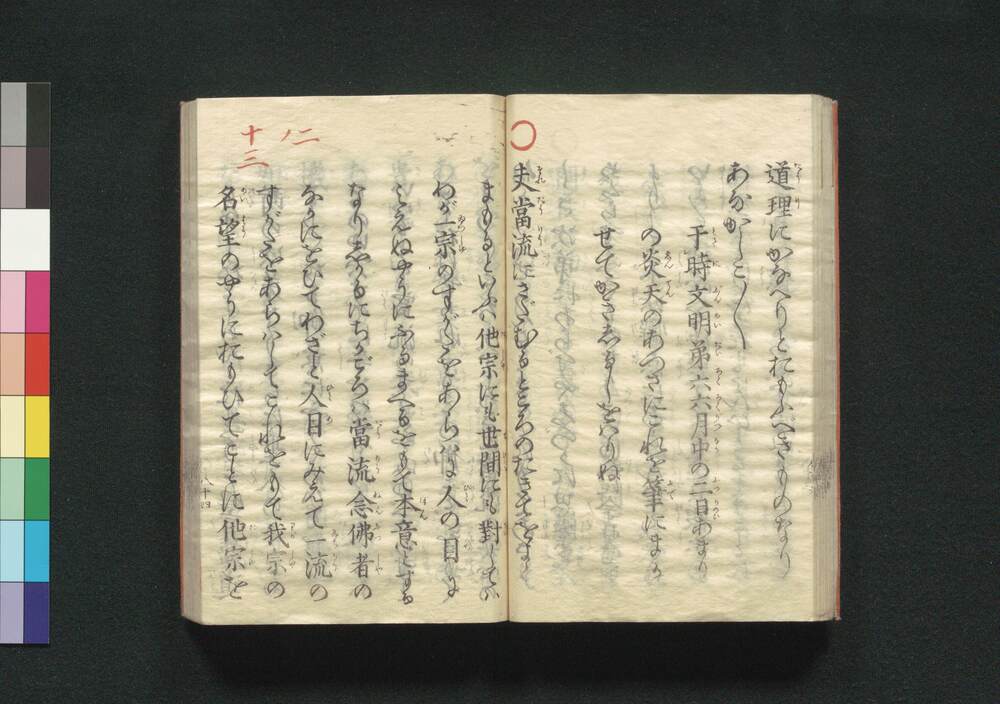 道理にかなへりとおもふべきものなり
あなかしこ〱
于時文明第六六月中の二日あまり
の炎天のあつさにこれを筆にまか
せてかきしるしをはりぬ
〇
夫當流にさだむるところのおきてをよく
まもるといふは他宗にも世間にも對しては
わが一宗のすがたをあらはに人の目に
みえぬやうにふるまへるをもて本意とする
なりしかるにちかごろは當流念佛者の
なかにをひてわざと人目にみえて一流の
すがたをあらはしてこれをもて我宗の
名望のやうにおもひてことに他宗を
二ノ
十三
八十四